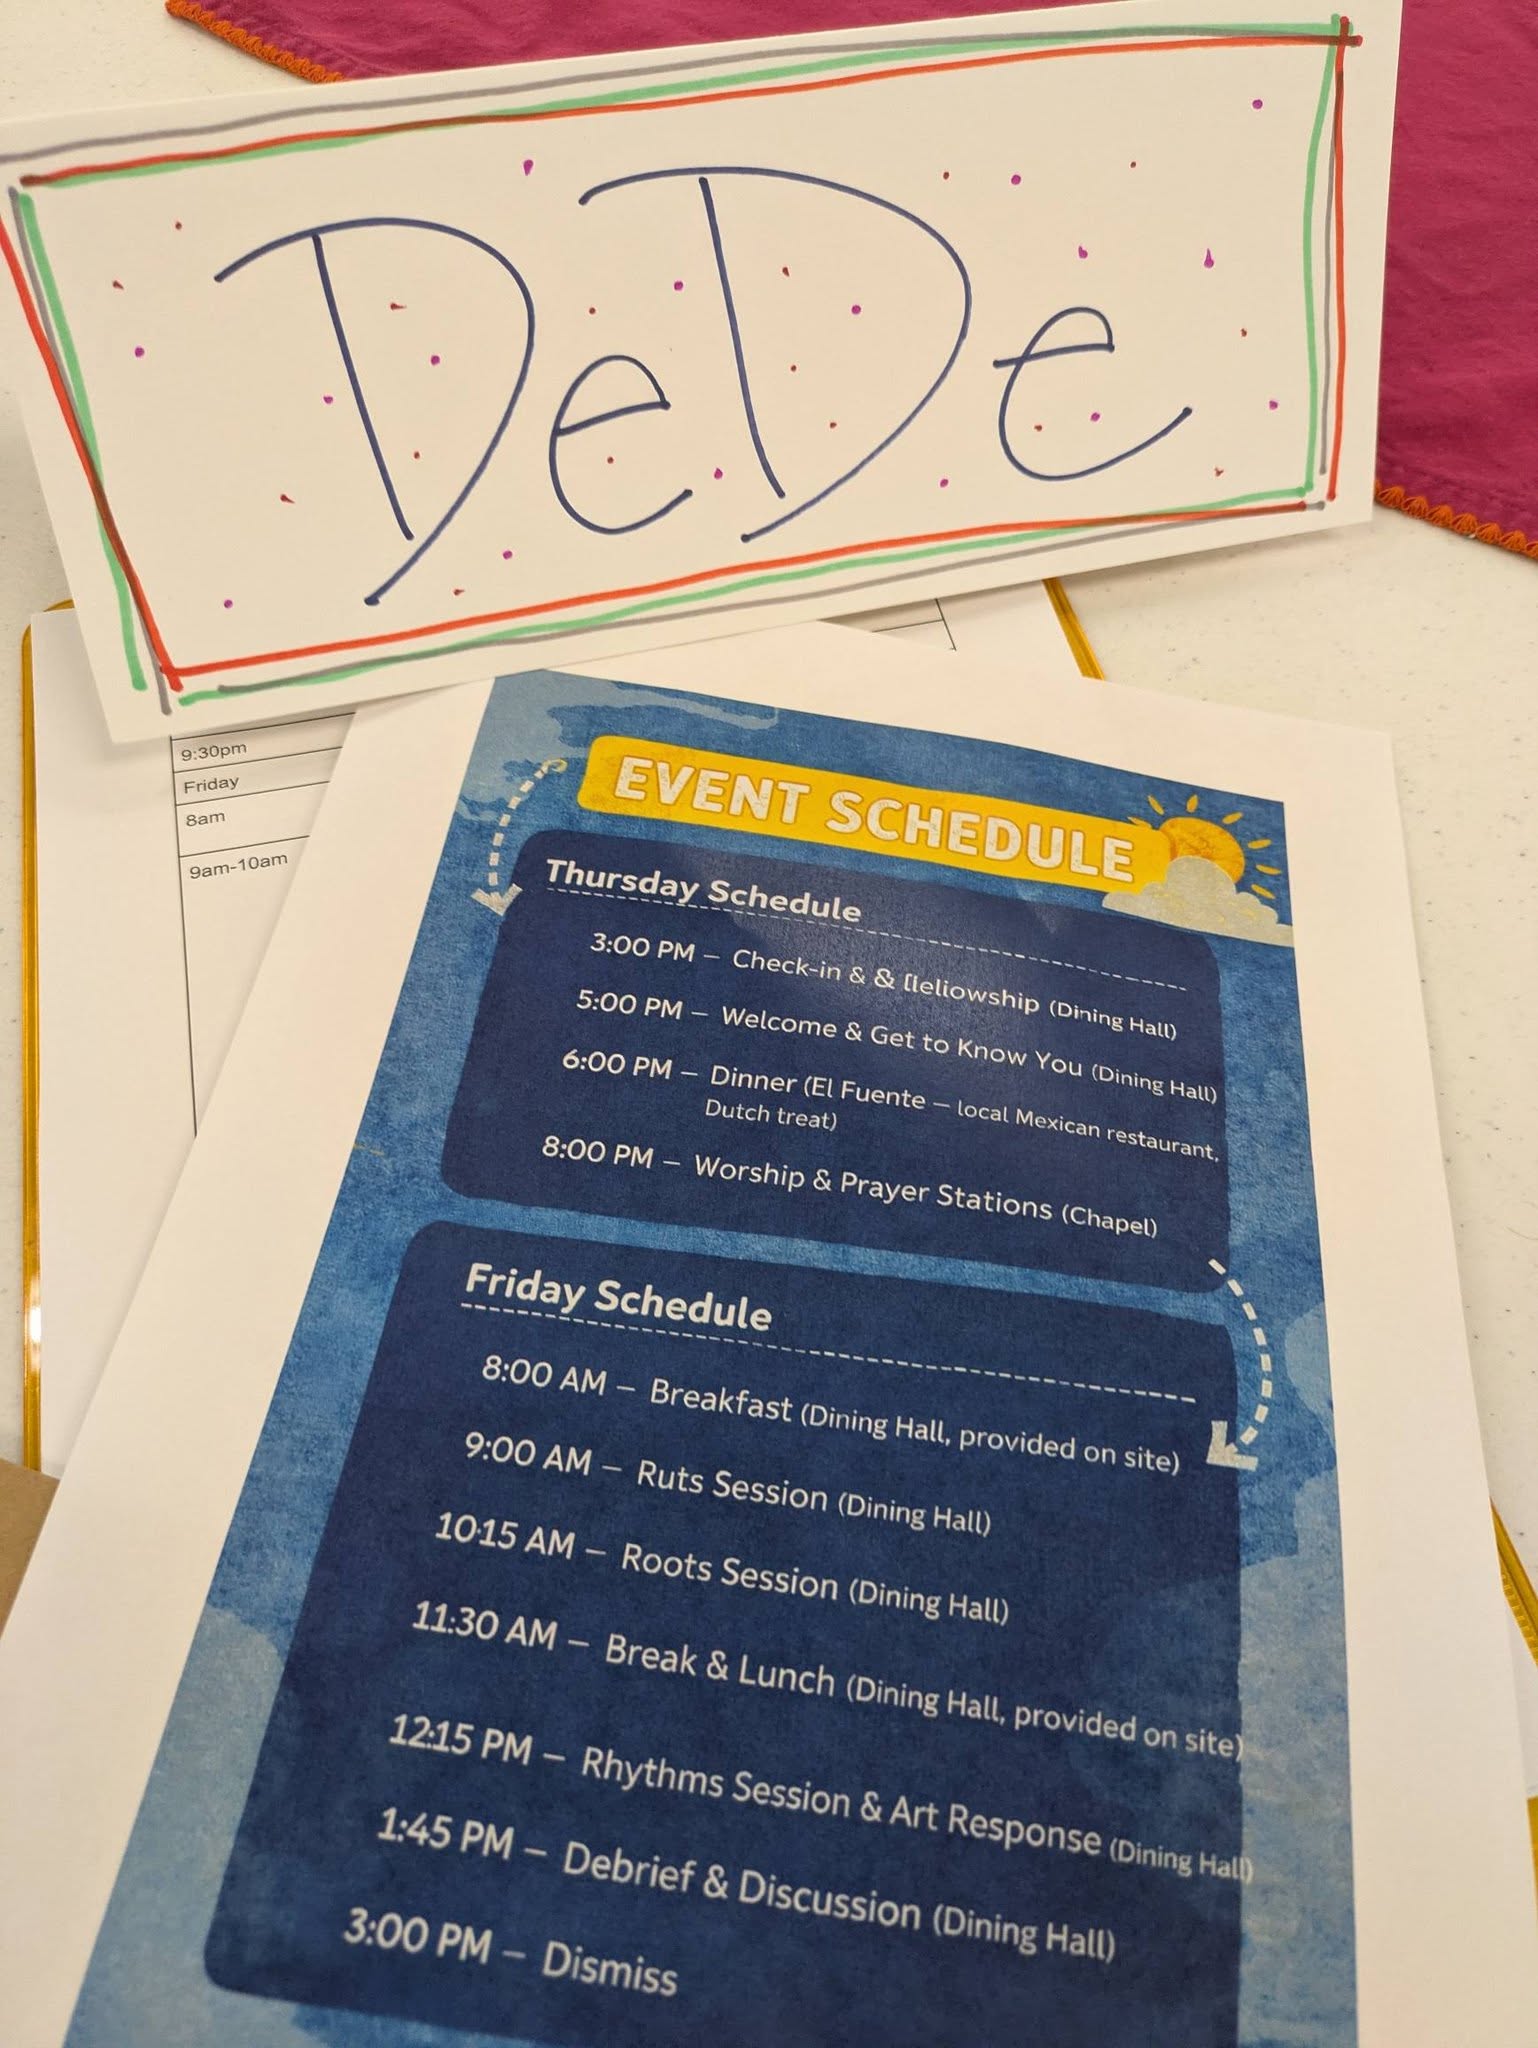 DeDe
9:30pm
Friday
8am
9am-10am
EVENT SCHEDULE
Thursday Schedule
3:00 PM – Check-in & & [leliowship (Dining Hall)
5:00 PM – Welcome & Get to Know You (Dining Hall)
6:00 PM – Dinner (El Fuente – local Mexican restaurant,
Dutch treat)
8:00 PM – Worship & Prayer Stations (Chapel)
Friday Schedule
8:00 AM – Breakfast (Dining Hall, provided on site)
9:00 AM – Ruts Session (Dining Hall)
10:15 AM – Roots Session (Dining Hall)
11:30 AM – Break & Lunch (Dining Hall, provided on site)
12:15 PM – Rhythms Session & Art Response (Dining Hall)
1:45 PM – Debrief & Discussion (Dining Hall)
3:00 PM – Dismiss